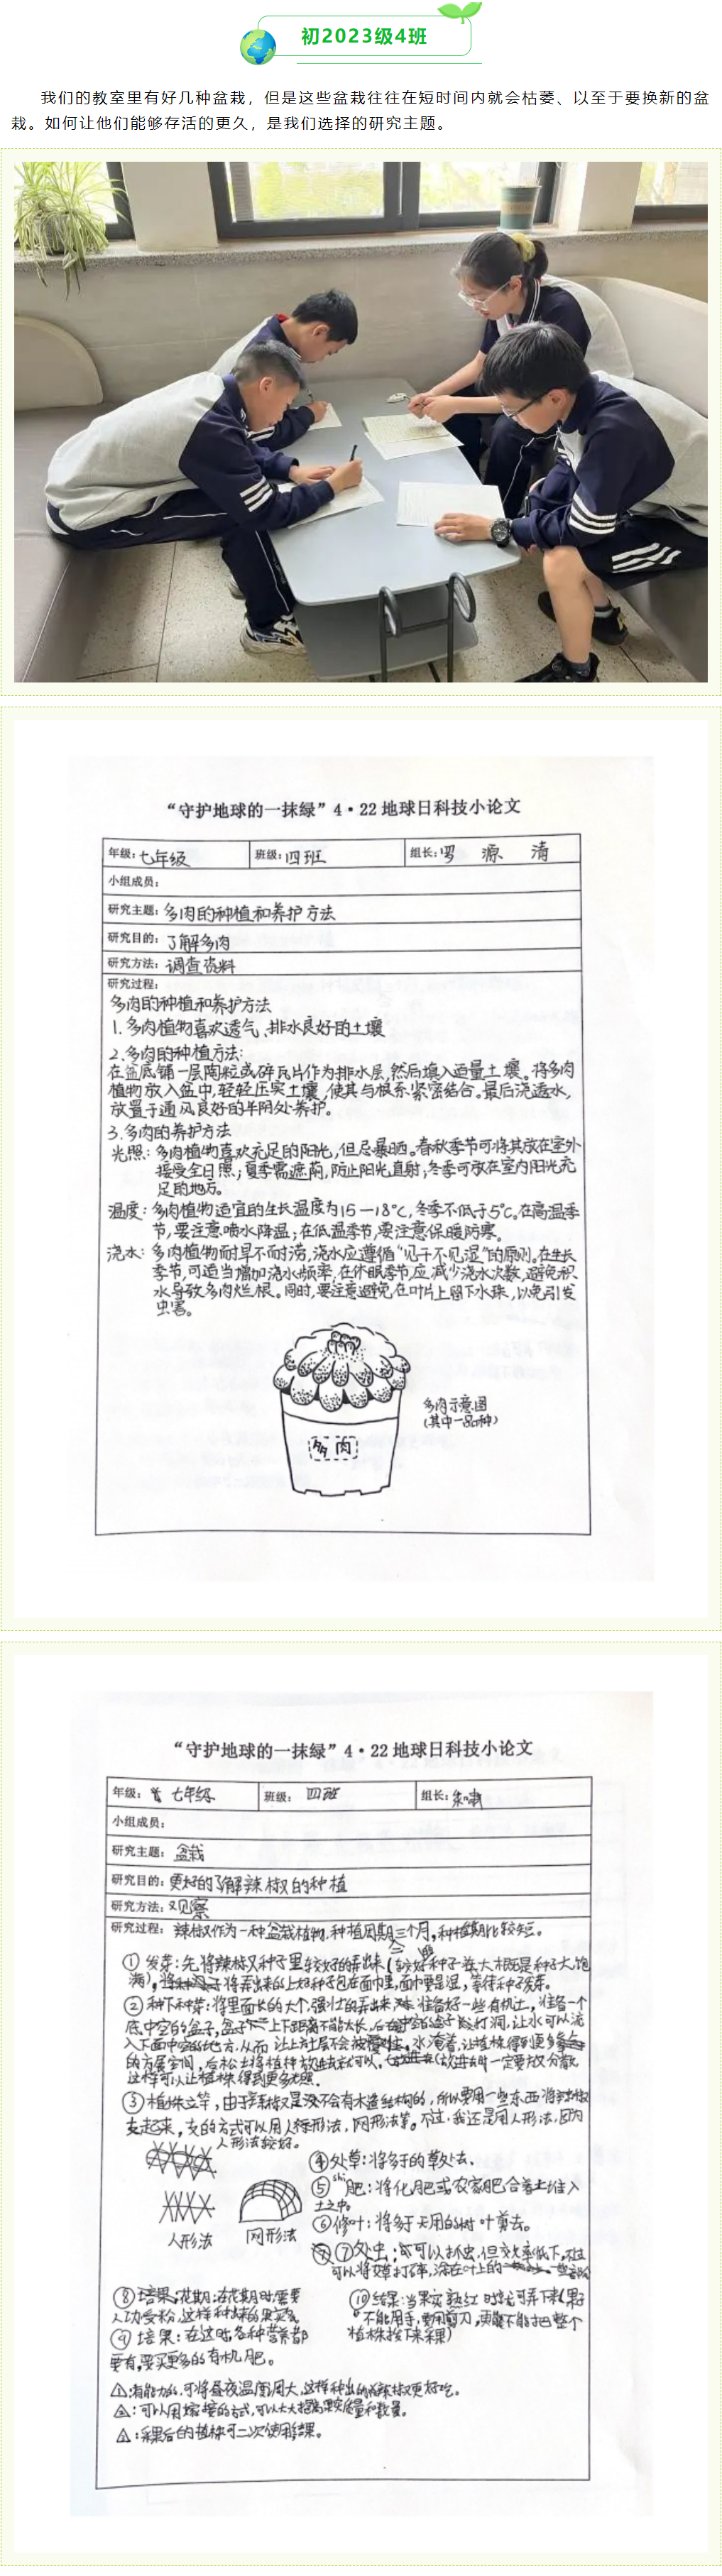 初2023级4班
我们的教室里有好几种盆栽，但是这些盆栽往往在短时间内就会枯萎、以至于要换新的盆
栽。如何让他们能够存活的更久，是我们选择的研究主题。
“守护地球的一抹绿”4·22地球日科技小论文
年级：七年级 班级：四班 组长：罗 源 清
小组成员：
研究主题：多肉的种植和养护方法
研究目的：了解多肉
研究方法：调查资料
研究过程：
多肉的种植和养护方法
1.多肉植物喜欢透气、排水良好的土壤
2.多肉的种植方法：
在盆底铺一层陶粒或碎瓦片作为排水层，然后填入适量土壤。将多肉
植物放入盆中，轻轻压实土壤，使其与根系紧密结合。最后浇透水，
放置于通风良好的半阴处养护。
3.多肉的养护方法
光照：多肉植物喜欢充足的阳光，但忌暴晒。春秋季节可将其放在室外
接受全日照；夏季需遮荫，防止阳光直射；冬季可放在室内阳光充
足的地方。
温度：多肉植物适宜的生长温度为15—18℃，冬季不低于5℃。在高温季
节，要注意喷水降温；在低温季节，要注意保暖防寒。
浇水：多肉植物耐旱不耐涝，浇水应遵循“见干不见湿”的原则。在生长
季节，可适当增加浇水频率，在休眠季节应减少浇水次数，避免积
水导致多肉烂根。同时，要注意避免在叶片上留下水珠，以免引发
虫害。
多肉示意图
（其中一品种）
多肉
“守护地球的一抹绿”4·22地球日科技小论文
年级：七年级 班级：四班 组长：
小组成员：
研究主题：盆栽
研究目的：更好的了解辣椒的种植
研究方法：观察
研究过程：辣椒作为一种盆栽植物，种植周期三个月，种植期比较短。
①发芽：先将辣椒种子里较好的弄出来（较好种子在大概是种子大，饱
满），将弄出来的上好种子包在面巾里，面巾要是湿，等待种子发芽。
②种下种芽：将里面长的大个，强壮的弄出来，准备好一些有机土，准备一个
底中空的盒子，盒子上下距离不能太长，后在中空的盒子处打洞，让水可以流
入下面中空的地方，从而让上方土层不会被水淹着，让植株得到更多
的方展空间，后松土将植株放进去就可以，一定要放分散，
这样可以让植株得到更多光照。
③植株立竿，由于辣椒是没不会有木造结构的，所以要用一些东西将辣椒
支起来，支的方式可以用人形法，网形法等。不过，我还是用人形法，因为
人形法较好。
人形法 网形法
④处草：将多于的草处去。
⑤shi肥：将化肥或农家肥合着土堆入
土之中。
⑥修叶：将多于无用的树叶剪去。
⑦处虫：你可以抓虫，但效率低下，
可以将草打碎，涂在叶上的
⑧花期：在花期时，需要
人功受粉，这样种出的果实多。
⑨培果：在这时，各种营养都
要有，要买更多的有机肥。
⑩结果：当果实熟红时就可弄下来（果子
不能用手，要用剪刀，更不能把整个
植株按下来采）
⚠：有能力的，可将昼夜温度调大，这样种出的辣椒更好吃。
⚠：可以用嫁接的方式，可以大大提高果实质量和数量。
⚠：采果后的植株可二次使用结果。